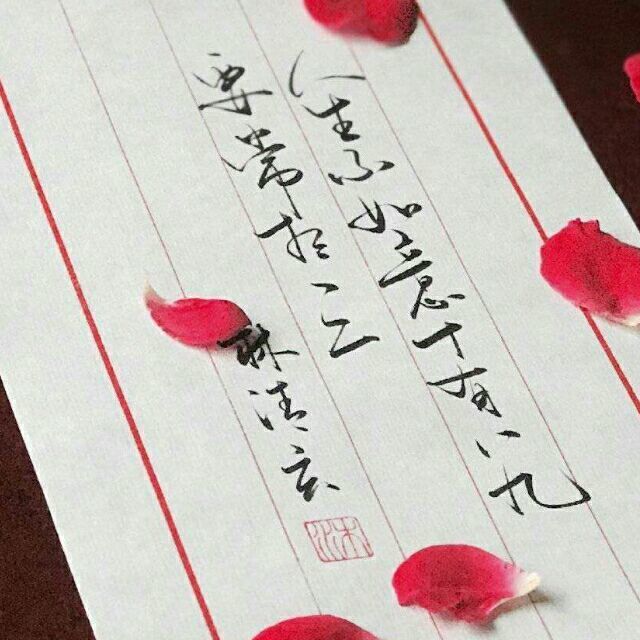 人生不如意十有八九
要常想一二
林清玄